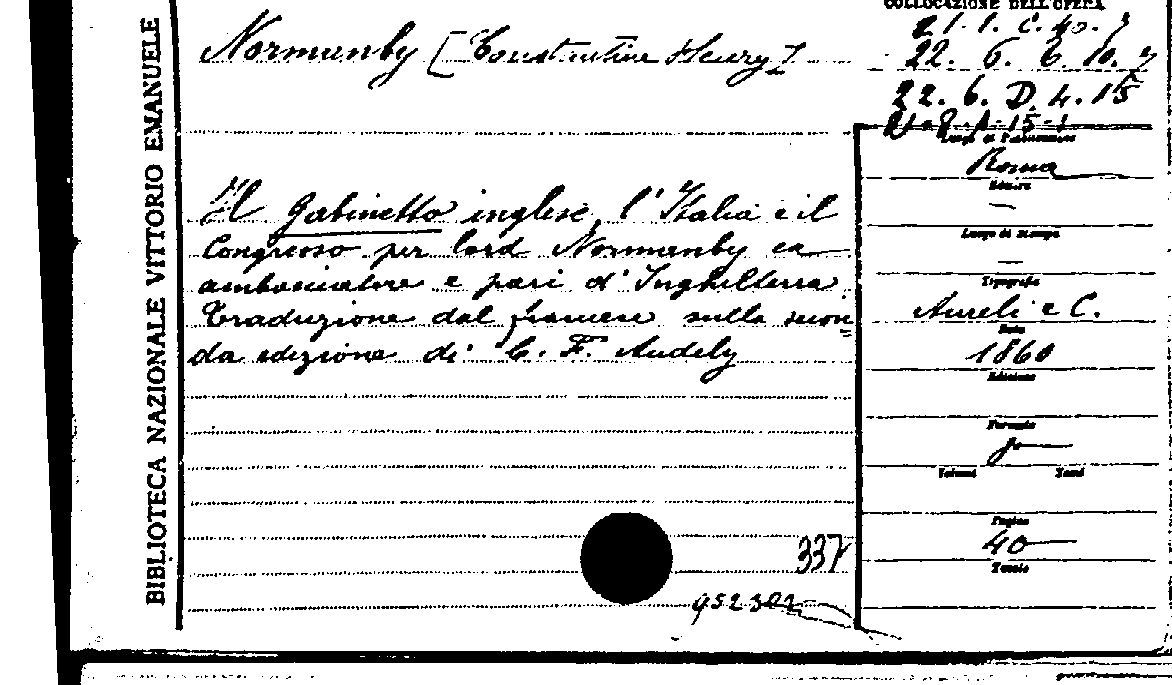 COLLOCAZIONE DELL'OPERA
21. 1. C. 40. 7
22. 6. 6. 10. 7
22. 6. D. 4. 15
Normanby [Constantine Henry]
BIBLIOTECA NAZIONALE VITTORIO EMANUELE
Il Gabinetto inglese, l'Italia e il
Congresso per lord Normanby ex
ambasciatore e pari d'Inghilterra.
Traduzione dal francese sulla secon
da edizione di C. F. Audely
Luogo di Pubblicazione
Roma
Editore
—
Luogo di stampa
—
Tipografia
Aureli e C.
Data
1860
Edizione
Formato
8º
Volumi Tomi
Pagine
40
Tavole
337
952302